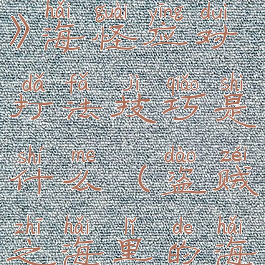 hǎi guài yīng duì
》海怪应对
dǎ fǎ jì qiǎo shì
打法技巧是
shí me dào zéi
什么（盗贼
zhī hǎi lǐ de hǎi
之海里的海